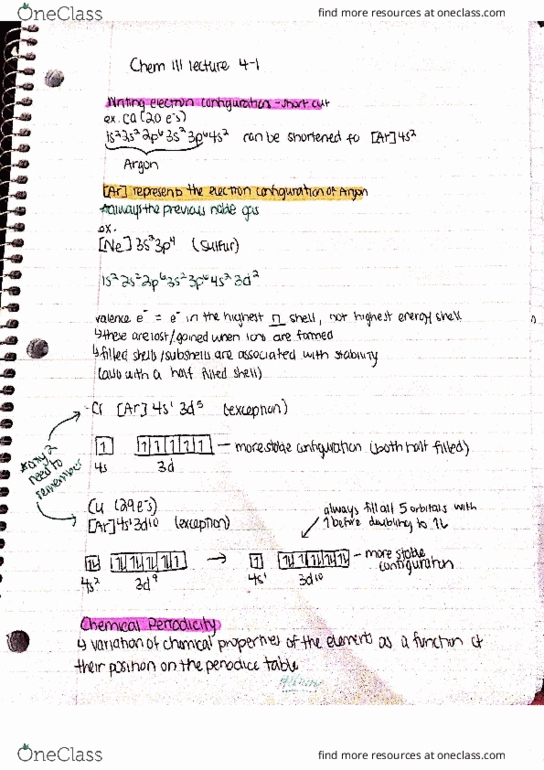 OneClass
find more resources at oneclass.com
Chem 111 lecture 4-1
Writing electron configuration - short cut
ex. Ca (20 e⁻s)
1s²2s²2p⁶3s²3p⁶4s² can be shortened to [Ar]4s²
Argon
[Ar] represents the electron configuration of Argon
*always the previous noble gas
ex.
[Ne]3s²3p⁴ (sulfur)
1s²2s²2p⁶3s²3p⁶4s²3d²
valence e⁻ = e⁻ in the highest n shell, not highest energy shell
↳these are lost/gained when ions are formed
↳filled shells/subshells are associated with stability
(also with a half filled shell)
-Cr [Ar]4s¹3d⁵ (exception)
1 1 1 1 1 1 — more stable configuration (both half filled)
4s 3d
*only 2
need to
remember
Cu (29 e⁻s)
[Ar]4s¹3d10 (exception)
always fill all 5 orbitals with
1 before doubling to 1L
1L 1L 1L 1L 1L 1 → 1 1L 1L 1L 1L 1L — more stable
configuration
4s² 3d⁹ 4s¹ 3d¹⁰
Chemical Periodicity
↳ variation of chemical properties of the elements as a function of
their position on the periodice table
OneClass
find more resources at oneclass.com